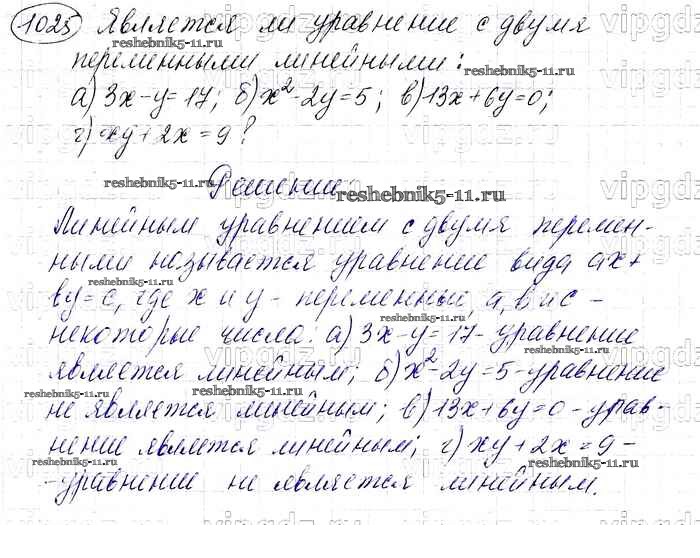 1025 Является ли уравнение с двумя
переменными линейными:
а) 3x-y=17; б) x²-2y=5; в) 13x+6y=0;
г) xy+2x=9?
Решение
Линейным уравнением с двумя перемен-
ными называется уравнение вида ax+
by=c, где x и y - переменные, a, b и c -
некоторые числа: а) 3x-y=17 - уравнение
является линейным; б) x²-2y=5 - уравнение
не является линейным; в) 13x+6y=0 - урав-
нение является линейным; г) xy+2x=9 -
- уравнение не является линейным.
reshebnik5-11.ru
reshebnik5-11.ru
reshebnik5-11.ru
reshebnik5-11.ru
reshebnik5-11.ru
reshebnik5-11.ru
reshebnik5-11.ru
reshebnik5-11.ru
reshebnik5-11.ru
reshebnik5-11.ru
reshebnik5-11.ru
reshebnik5-11.ru